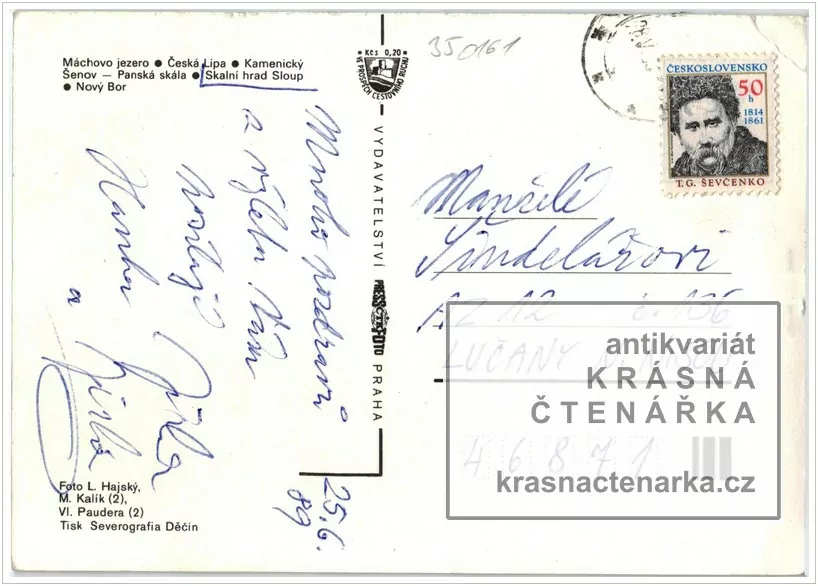 Máchovo jezero ● Česká Lípa ● Kamenický
Šenov — Panská skála ● Skalní hrad Sloup
● Nový Bor
Mnoho pozdravů
z výletu Vám
posílají
Jiřka
Hanka
a
Jirka
25.6.
89
Foto L. Hajský,
M. Kalík (2),
Vl. Paudera (2)
Tisk Severografia Děčín
Kčs 0,20
VE PROSPĚCH CESTOVNÍHO RUCHU
VYDAVATELSTVÍ PRESSFOTO PRAHA
ČTK
350161
ČESKOSLOVENSKO
50
h
1814
1861
T.G. ŠEVČENKO
Manželé
Šindelářovi
č. 136
LUČANY N. NISOU
46871
antikvariát
KRÁSNÁ
ČTENÁŘKA
krasnactenarka.cz